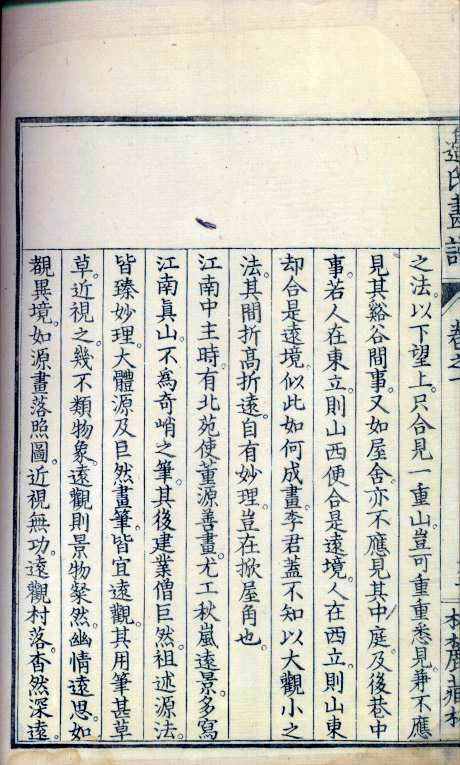 畫
卷之一
之法以下望上只合見一重山豈可重重悉見兼不應
見其谿谷間事又如屋舍亦不應見其中庭及後巷中
事若人在東立則山西便合是遠境人在西立則山東
却合是遠境似此如何成畫李君蓋不知以大觀小之
法其間折高折遠自有妙理豈在掀屋角也
江南中主時有北苑使董源善畫尤工秋嵐遠景多寫
江南眞山不爲奇峭之筆其後建業僧巨然祖述源法
皆臻妙理大體源及巨然畫筆皆宜遠觀其用筆甚草
草近視之幾不類物象遠觀則景物粲然幽情遠思如
覩異境如源畫落照圖近視無功遠觀村落杳然深遠